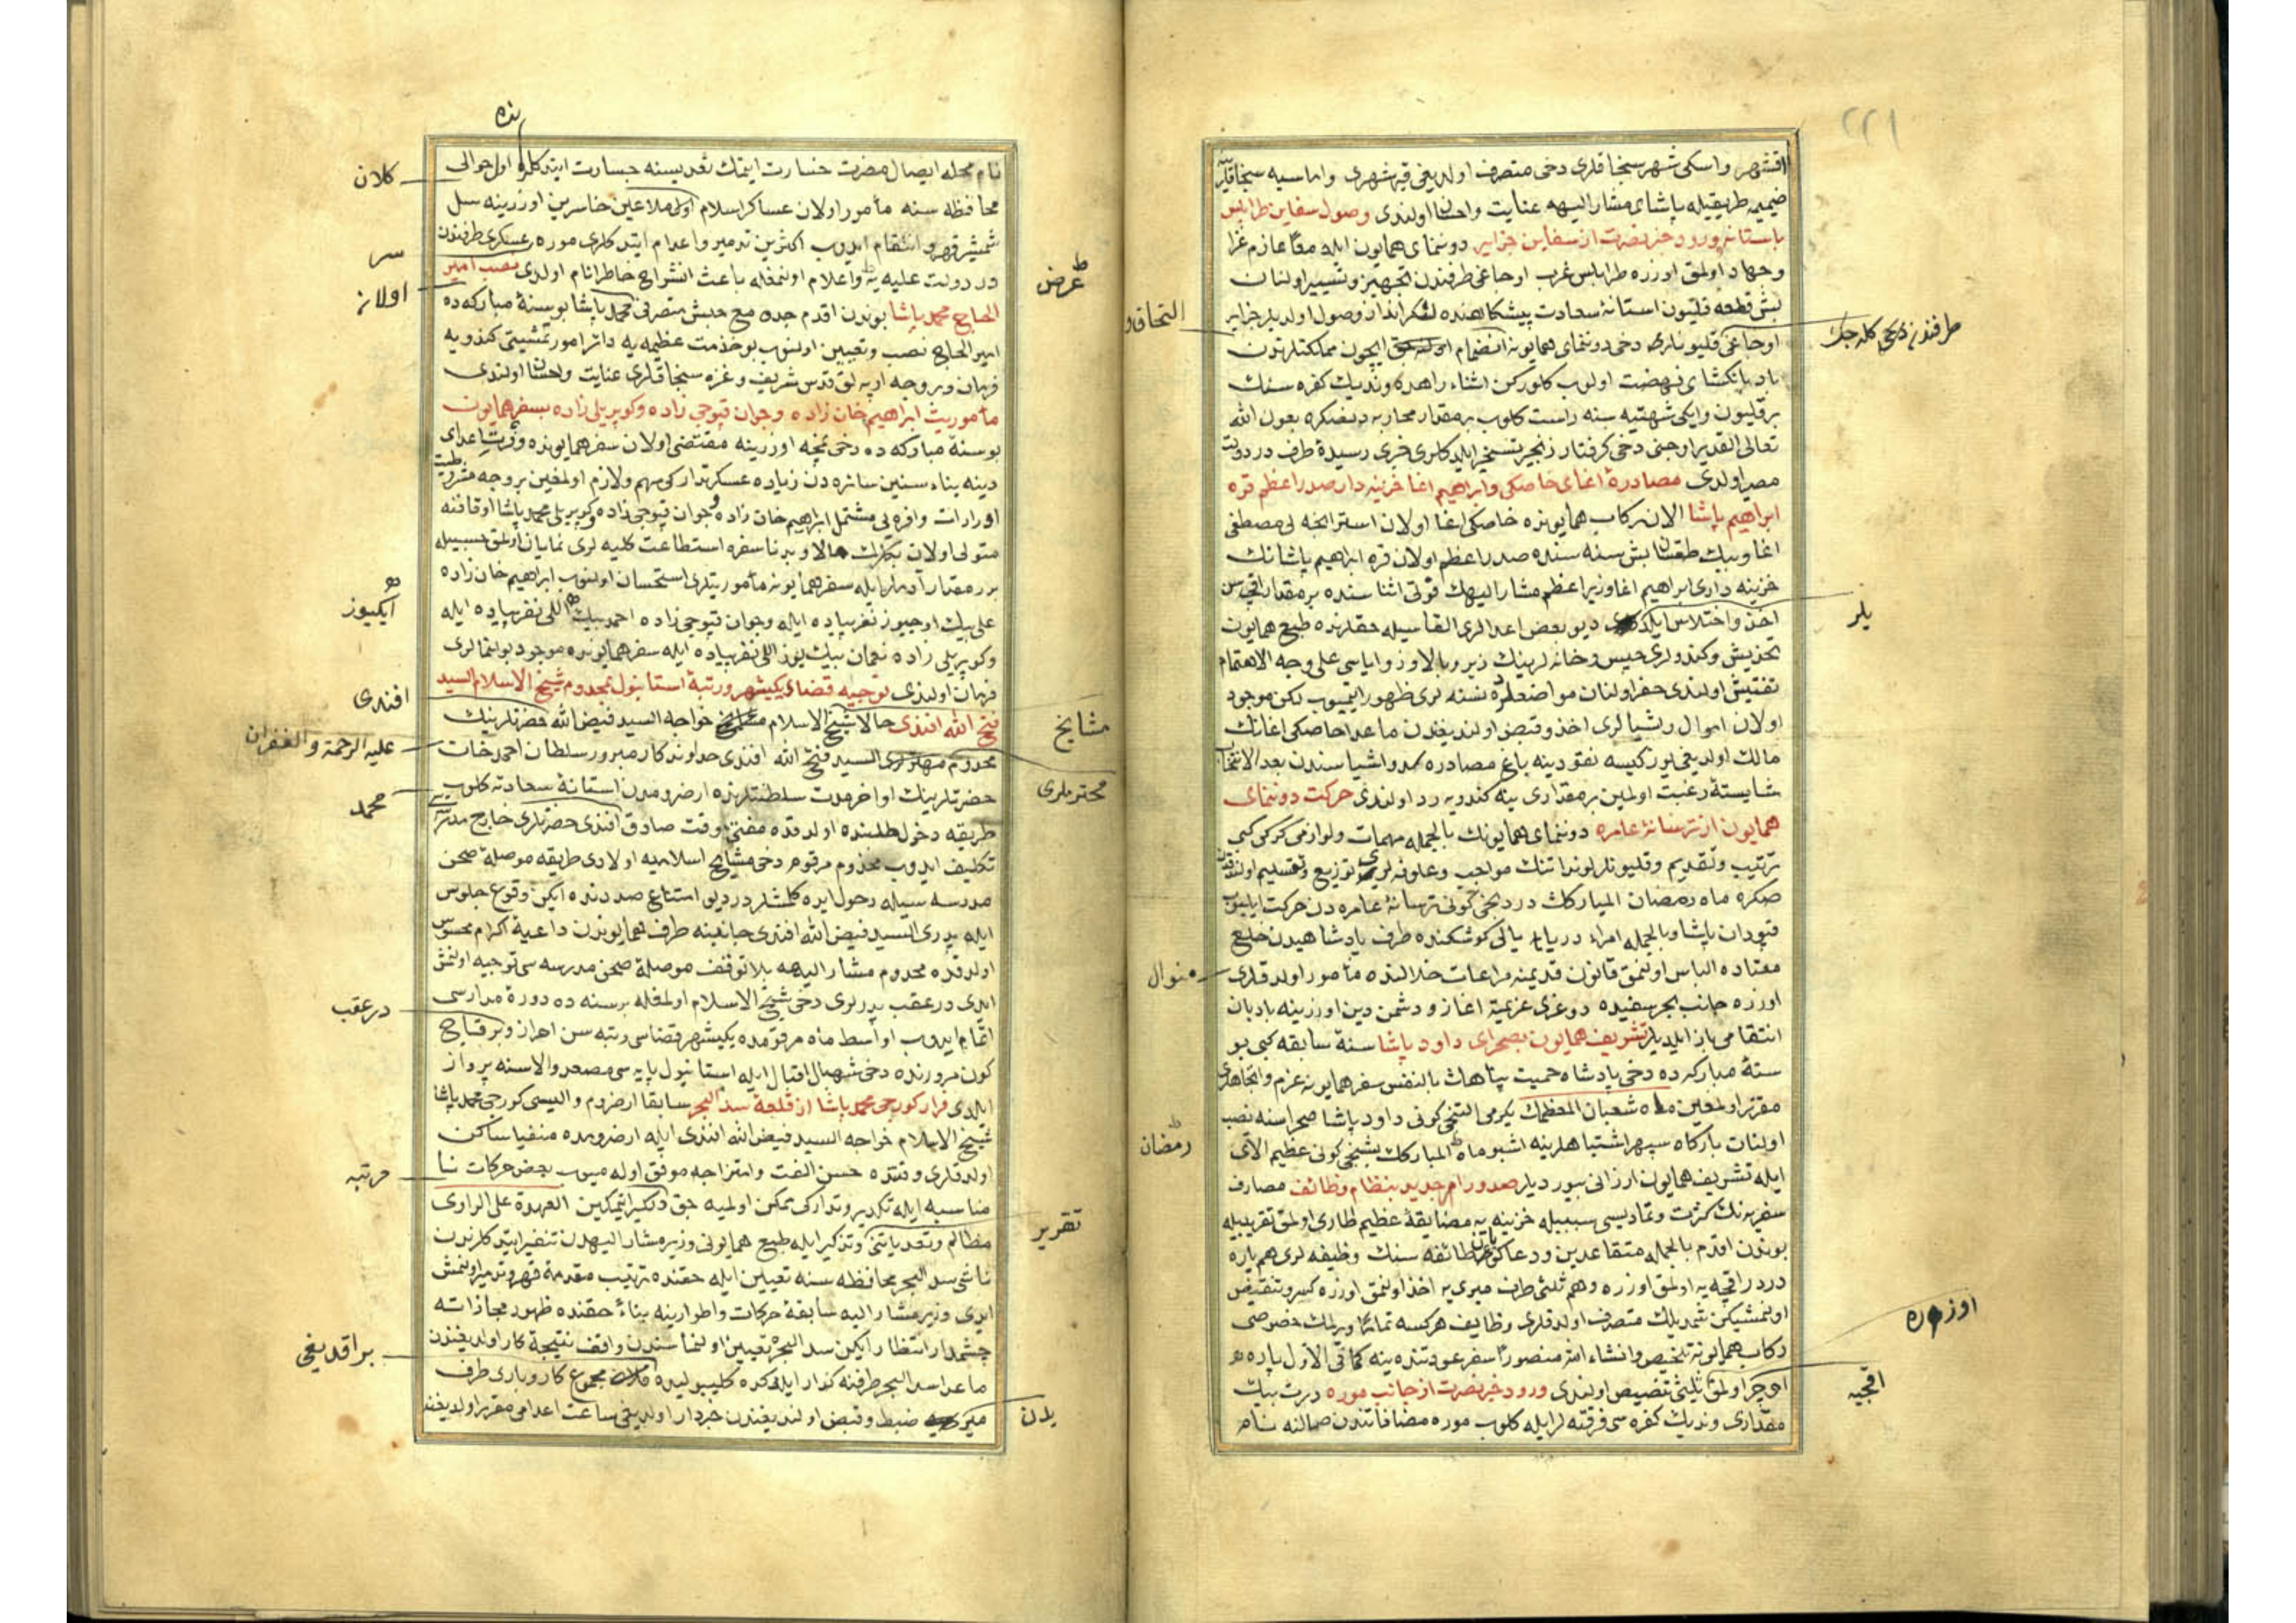 ٢٢١
اقشهر واسكی شهر سنجاقلری دخی متصرف اولدیغی قیرشهری واماسیه سنجاقلرینه
ضمیمه طریقیله پاشای مشار الیهه عنایت واحسان اولندی وصول سفاین طرابلس
باستانه وورود خبر نصرت از سفاین جزایر دوننمای همایون ایله معًا عازم غزا
وجهاد اولمق اوزره طرابلس غرب اوجاغی طرفندن تجهیز وتسییر اولنان
بش قطعه قلیون استانهٔ سعادت پیشكاهنده لنكر انداز وصول اولدیلر جزایر
اوجاغی قلیونلری دخی دوننمای همایونه انضمام ایچون مملكتلرندن
باد بانكشای نهضت اولوب كلوركن اثناء راهده وندیك كفره سنك
بر قلیون وایكی شهتیه سنه راست كلوب بر مقدار محاربه دنصكره بعون الله
تعالی القدیر اوچنی دخی كرفتار زنجیر تسخیر ایلدكلری خبری رسیدهٔ طرف در دولت
مصیر اولدی مصادرهٔ اغای خاصكی وابراهیم اغا خزینه دار صدر اعظم قره
ابراهیم پاشا الان ركاب همایونده خاصكی اغا اولان استرانجه لی مصطفی
اغا وبیك طقسان بش سنه سنده صدر اعظم اولان قره ابراهیم پاشانك
خزینه داری ابراهیم اغا وزیر اعظم مشار الیهك قوتی اثنا سنده بر مقدار اقچه سن
اخذ واختلاس ایلدی دیو بعض اعدالری القا سیله حقلرنده طبع همایون
تخدیش وكندولری حبس وخانه لرینك زیر وبالا وزوایاسی علی وجه الاهتمام
تفتیش اولندی حفر اولنان مواضعلرده نسنه لری ظهور ایتمیوب لكن موجود
اولان اموال واشیالری اخذ وقبض اولندیغندن ماعدا خاصكی اغانك
مالك اولدیغی یوز كیسه نقودینه بالغ مصادره اولندی واشیا سندن بعد الانتخاب
شایستهٔ رغبت اولمین بر مقداری ینه كندویه رد اولندی حركت دوننمای
همایون از ترسانهٔ عامره دوننمای همایونك بالجمله مهمات ولوازمی كركی كبی
ترتیب وتقدیم وقلیونلر لونداتنك مواجب وعلوفه لری توزیع وتقسیم اولندقدن
صكره ماه رمضان المباركك دردنجی كونی ترسانهٔ عامره دن حركت ایلیوب
قپودان پاشا وبالجمله امراء دریا یالی كوشكنده طرف پادشاهیدن خلع
معتاده الباس اولنمق قانون قدیمنه مراعات خلالنده مأمور اولدقلری
اوزره جانب بحر سفیده دوغری عزیمة اغاز ودشمن دین اوزرینه بادبان
انتقامی باز ایلدیلر تشریف همایون بصحرای داود پاشا سنهٔ سابقه كبی بو
سنهٔ مباركه ده دخی پادشاه حمیت پناهك بالنفس سفر همایونه عزم واتجاهلری
مقرر اولمغین ماه شعبان المعظمك یكرمی التنجی كونی داود پاشا صحراسنه نصب
اولنان باركاه سپهر اشتباهلرینه اشبو ماه المباركك بشنجی كونی عظیم الای
ایله تشریف همایون ارزانی بیوردیلر صدور امر جدید بنظام وظائف مصارف
سفریه نك كثرت وتمادیسی سببیله خزینه یه مضایقهٔ عظیم طاری اولمق تقریبیله
بوندن اقدم بالجمله متقاعدین ودعاكویان طائفه سنك وظیفه لری هم پاره
درت بر اقچه یه اولمق اوزره وهم ثلثی طرف میری یه اخذ اولنمق اوزره كسر وتنقیص
اولنمشیكن شمدیلك متصرف اولدقلری وظایف هركسه تمامًا ویرلمك خصوصی
ركاب همایونه تلخیص وانشاء الله منصورًا سفر عودتنده ینه كما فی الاول پاره
اوچر اولمق ثلثی تخصیص اولندی ورود خبر نصرت از جانب موره درت بیك
مقداری وندیك كفره سی فرقته لر ایله كلوب موره مضافاتندن صمالنه نام
التحاق و
طرفندن دخی كله جك
یلر
منوال
رمضان
اوزره
اقچیه
نده
نام محله ایصال مضرت خسارت ایتمك تعدیسنه جسارت ایتدكلرو اول حوالی
محافظه سنه مأمور اولان عساكر اسلام اول ملاعین خاسرین اوزرینه سل
شمشیر قهر وانتقام ایدوب اكثرین تدمیر واعدام ایتدكلری موره عسكری طرفندن
در دولت علیه یه واعلام اولنمغله باعث انشراح خاطر انام اولدی نصب امیر
الحاج محمد پاشا بوندن اقدم جده مع حبش متصرفی محمد پاشا بو سنهٔ مباركه ده
امیر الحاج نصب وتعیین اولنوب بو خدمت عظیمه یه دائر امور تمشیتی كندویه
فرمان وبر وجه ارپه لق قدس شریف وغزه سنجاقلری عنایت واحسان اولندی
مأموریت ابراهیم خان زاده وجوان قپوجی زاده وكوپریلی زاده بسفر همایون
بو سنهٔ مباركه ده دخی نمچه اوزرینه مقتضی اولان سفر همایونده وفرت اعدای
دینه بناء سنین سائره دن زیاده عسكر تداركی مهم ولازم اولمغین بر وجه مشروطیت
اورادات وافره لی مشتمل ابراهیم خان زاده وجوان قپوجی زاده وكوپریلی محمد پاشا اوقافنه
متولی اولان بكلرك حالا وبرنا سفره استطاعت كلیه لری نمایان اولمق سببیله
برر مقدار آدملر ایله سفر همایونه مأموریتلری استحسان اولنوب ابراهیم خان زاده
علی بیك اوچیوز نفر پیاده ایله وجوان قپوجی زاده احمد بیك اللی نفر پیاده ایله
وكوپریلی زاده نعمان بیك یوز اللی نفر پیاده ایله سفر همایونده موجود بولنمالری
فرمان اولندی توجیه قضاء یكیشهر ورتبهٔ استانبول بمخدوم شیخ الاسلام السید
فتح الله افندی حالا شیخ الاسلام خواجه السید فیض الله حضرتلرینك
مخدوم السید فتح الله افندی خداوندكار مبرور سلطان احمد خان
حضرتلرینك اواخر مدت سلطنتلرنده ارضرومدن استانهٔ سعادته كلوب
طریقه دخول طلبنده اولدقده مفتئ وقت صادق افندی حضرتلری خارج مدرسه سی
تكلیف ایدوب مخدوم مرقوم دخی مشایخ اسلامیه اولادی طریقه موصلهٔ صحن
مدرسه سیله دخول ایده كلمشلردر دیو امتناع صددنده ایكن وقوع جلوس
ایله پدری السید فیض الله افندی جانبینه طرف همایوندن داعیهٔ اكرام محسوس
اولدقده مخدوم مشار الیهه بلا توقف موصلهٔ صحن مدرسه سی توجیه اولنمش
ایدی در عقب پدرلری دخی شیخ الاسلام اولمغله بر سنه ده دورهٔ مدارسی
اتمام ایدوب اواسط ماه مرقومده یكیشهر قضاسی رتبه سن احراز وبر قاچ
كون مرورنده دخی شهبال اقبال ایله استانبول پایه سی مصعد والاسنه پرواز
ایلدی فرار كورجی محمد پاشا از قلعهٔ سد البحر سابقا ارضروم والیسی كورجی محمد پاشا
شیخ الاسلام خواجه السید فیض الله افندی ایله ارضرومده منفیا ساكن
اولدقلری وقتده حسن الفت وامتزاجه موفق اوله میوب بعض حركات نا
مناسبه ایله تكدیر وتداركی ممكن اولمیه جق دلكیر ایتمكین العهدة علی الراوی
مظالم وتعدیاتنی وتذكیر ایله طبع همایونی وزیر مشار الیهدن تنفیر ایتدكلرندن
ناشی سد البحر محافظه سنه تعیین ایله حقنده ترتیب مقدمهٔ قهر وتدمیر اولنمش
ایدی وزیر مشار الیه سابقهٔ حركات واطوارینه بناءً حقنده ظهور مجازاته
چشمدار انتظار ایكن سد البحره تعیین اولنماسندن واقف نتیجهٔ كار اولدیغندن
ماعدا سد البحر طرفنه كذار ایلدكده كلیبولیده مجموع كار وباری طرف
میریدن ضبط وقبض اولندیغندن خبردار اولدیغی ساعت اعدامی مقرر اولدیغنه
كلان
سر
اولان
عرض
ایكیوز
افندی
مشایخ
علیه الرحمة والغفران
محترملری
محمد
در عقب
مرتبه
تقریر
براقدیغی
یدن